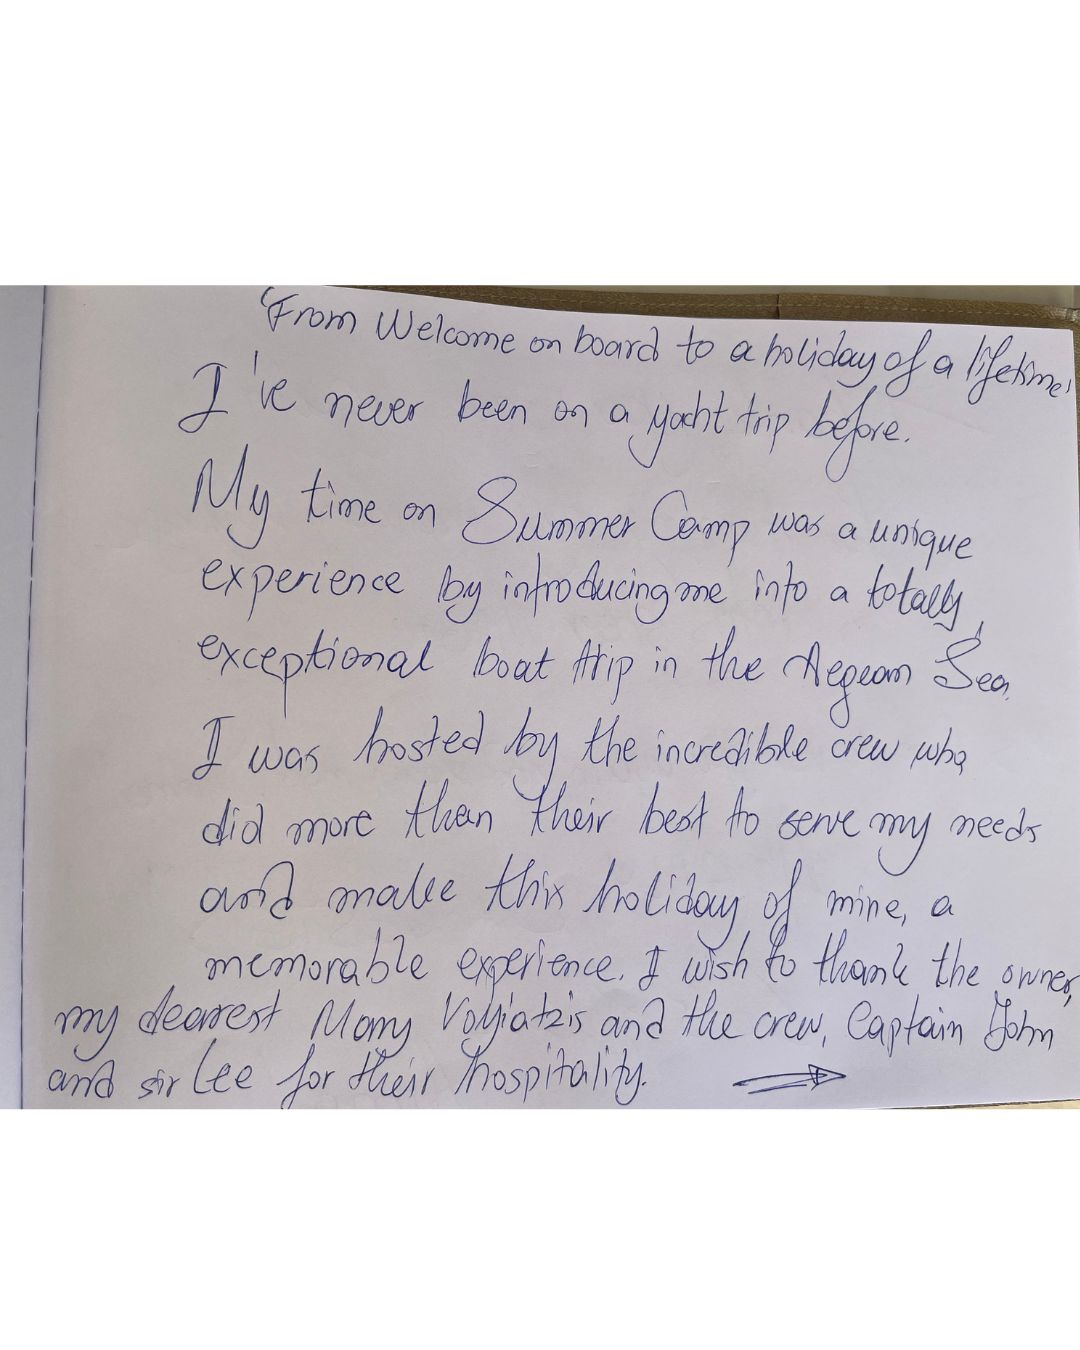 'From Welcome on board to a holiday of a lifetime'
I've never been on a yacht trip before.
My time on Summer Camp was a unique
experience by introducing me into a totally
exceptional boat trip in the Aegean Sea.
I was hosted by the incredible crew who
did more than their best to serve my needs
and make this holiday of mine, a
memorable experience. I wish to thank the owner,
my dearest Many Voyiatzis and the crew, Captain John
and sir Lee for their hospitality.